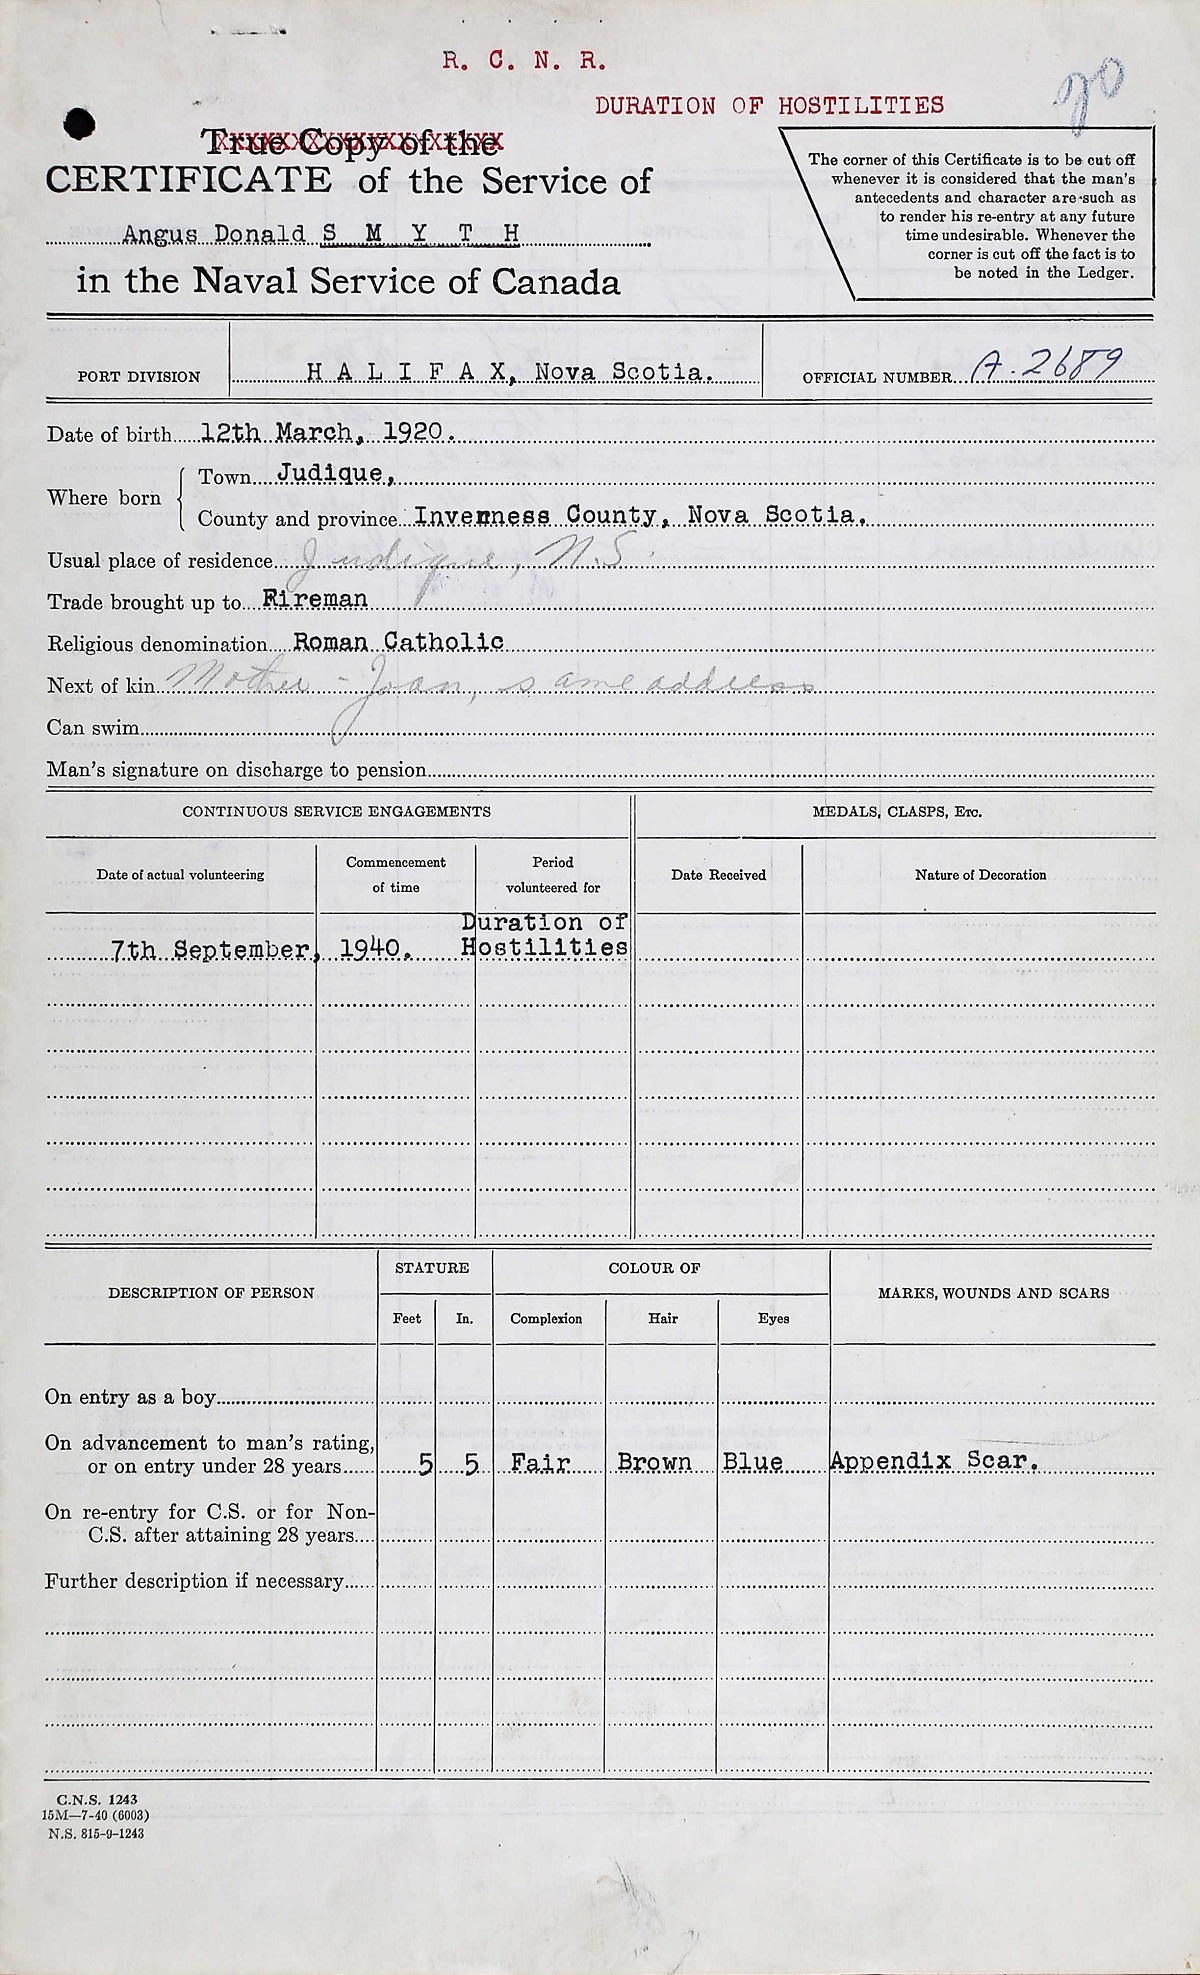 R. C. N. R.
DURATION OF HOSTILITIES
20
True Copy of the
CERTIFICATE of the Service of
Angus Donald S M Y T H
in the Naval Service of Canada
The corner of this Certificate is to be cut off
whenever it is considered that the man's
antecedents and character are such as
to render his re-entry at any future
time undesirable. Whenever the
corner is cut off the fact is to
be noted in the Ledger.
PORT DIVISION H A L I F A X, Nova Scotia. OFFICIAL NUMBER A. 2689
Date of birth 12th March, 1920.
Where born Town Judique,
County and province Inverness County, Nova Scotia.
Usual place of residence Judique, N.S.
Trade brought up to Fireman
Religious denomination Roman Catholic
Next of kin Mother - Joan, same address
Can swim
Man's signature on discharge to pension
CONTINUOUS SERVICE ENGAGEMENTS MEDALS, CLASPS, Etc.
Date of actual volunteering Commencement of time Period volunteered for Date Received Nature of Decoration
Duration of
7th September, 1940. Hostilities
DESCRIPTION OF PERSON STATURE COLOUR OF MARKS, WOUNDS AND SCARS
Feet In. Complexion Hair Eyes
On entry as a boy
On advancement to man's rating,
or on entry under 28 years 5 5 Fair Brown Blue Appendix Scar.
On re-entry for C.S. or for Non-
C.S. after attaining 28 years
Further description if necessary
C.N.S. 1243
15M—7-40 (6003)
N.S. 815-9-1243